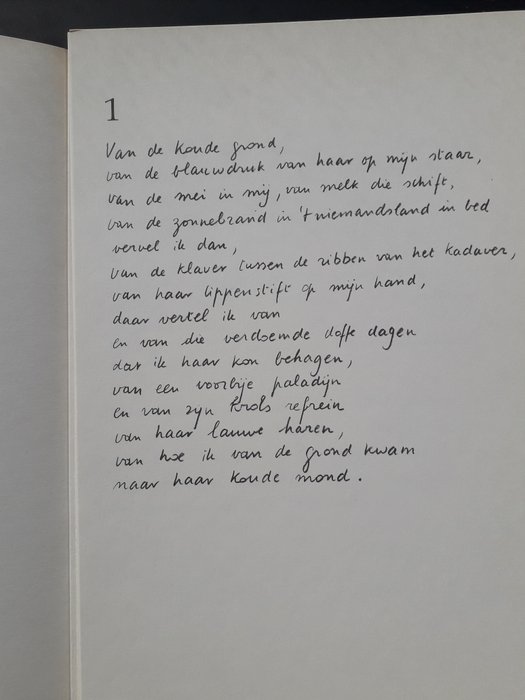 1
Van de koude grond,
van de blauwdruk van haar op mijn staar,
van de mei in mij, van melk die schift,
van de zonnebrand in 't niemandsland in bed
vervel ik dan,
van de klaver tussen de ribben van het kadaver,
van haar lippenstift op mijn hand,
daar vertel ik van
en van die verdoemde doffe dagen
dat ik haar kon behagen,
van een voorbije paladijn
en van zijn krols refrein
van haar lauwe haren,
van hoe ik van de grond kwam
naar haar koude mond.